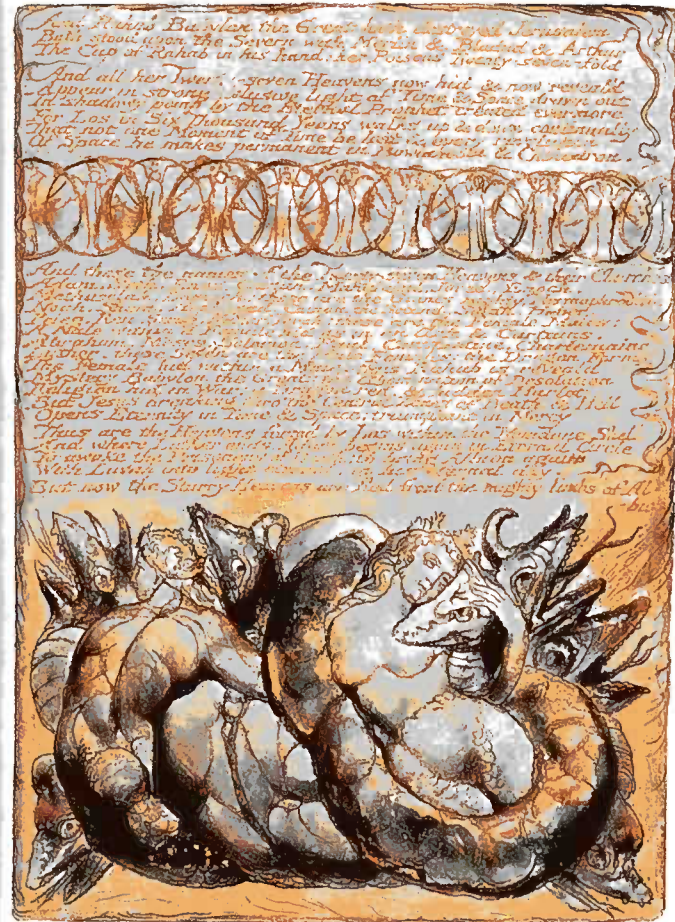 And Rahab Babylon the Great hath destroyed Jerusalem
Bath stood upon the Severn with Merlin & Bladud & Arthur
The Cup of Rahab in his hand: her Poisons Twenty-seven-fold
And all her Twenty-seven Heavens now hid & now reveal'd
Appear in strong delusive light of Time & Space drawn out
In shadowy pomp by the Eternal Prophet created evermore
For Los in Six Thousand Years walks up & down continually
That not one Moment of Time be lost & every revolution
Of Space he makes permanent in & Cathedron.
And these the names of the Twenty-seven Heavens & their Churches
Adam
Methuselah these are the Giants mighty Hermaphroditic
Noah the Second
these are the Female Males
A Male within a Female hid as in an Ark & Curtains
Abraham, Moses, Solomon, Paul, Constantine, Charlemaine
Luther, these Seven are the Male Females, the Dragon Forms
The Female hid within a Male: thus Rahab is reveald
Mystery Babylon the Great: the Abomination of Desolation
Religion hid in War: a Dragon red & hidden Harlot
But Jesus breaking thro' the Central Zones of Death & Hell
Opens Eternity in Time & Space; triumphant in Mercy
Thus are the Heavens formd by Los within the Mundane Shell
And where Luther ends Adam begins again in Eternal Circle
To awake the Prisoners of Death; to bring Albion again
With Luvah into light eternal, in his eternal day
But now the Starry Heavens are fled from the mighty limbs of Al-
-bion